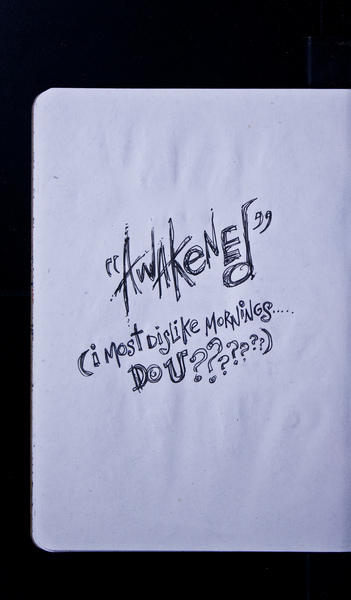 "AWAKENEd"
(i MOST DiSLiKe MORNiNGS.....
DO U???????)